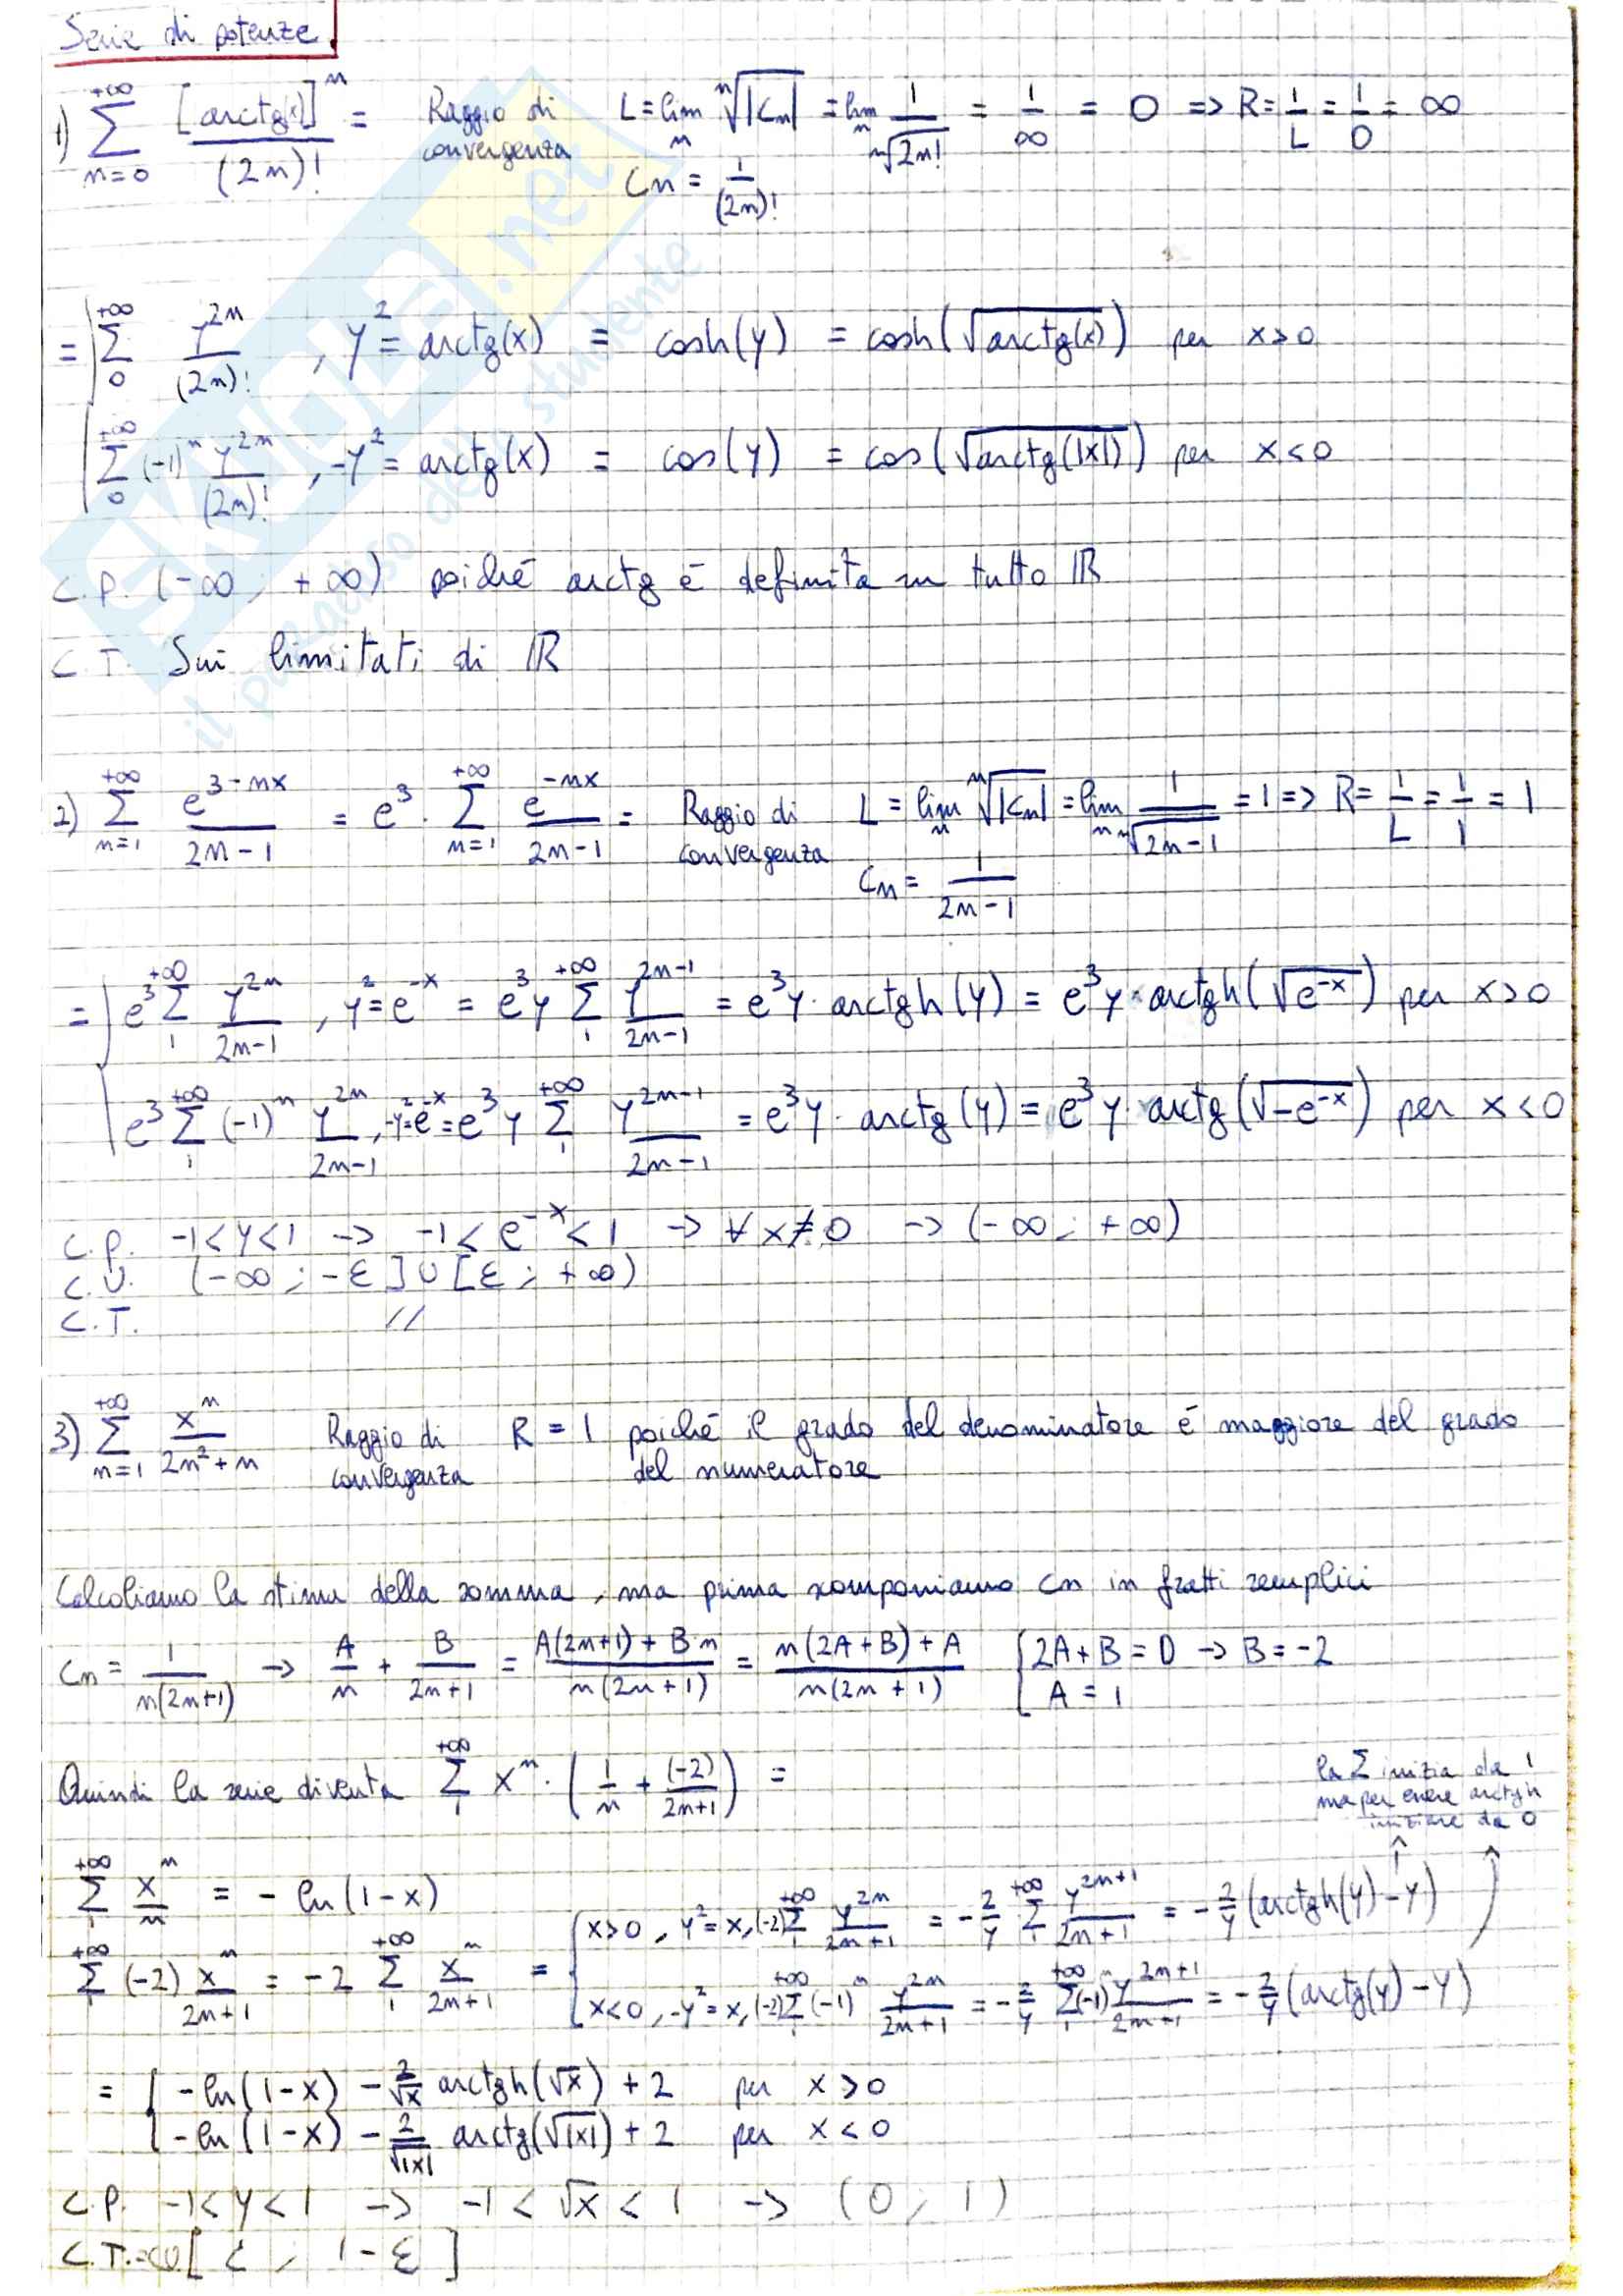 Serie di potenze
1) \sum_{n=0}^{+∞} \frac{[arctg(x)]^n}{(2n)!} = Raggio di convergenza L = lim_n \sqrt[n]{|Cn|} = lim_n \frac{1}{\sqrt[n]{2n!}} = \frac{1}{∞} = 0 => R = \frac{1}{L} = \frac{1}{0} = ∞
Cn = \frac{1}{(2n)!}
= \sum_0^{+∞} \frac{y^{2n}}{(2n)!}, y^2 = arctg(x) = cosh(y) = cosh(\sqrt{arctg(x)}) per x>0
\sum_0^{+∞} (-1)^n \frac{y^{2n}}{(2n)!}, -y^2 = arctg(x) = cos(y) = cos(\sqrt{arctg(|x|)}) per x<0
C.P. (-∞; +∞) poiché arctg è definita in tutto ℝ
C.T. Sui limitati di ℝ
2) \sum_{n=1}^{+∞} \frac{e^{3-nx}}{2n-1} = e^3 · \sum_{n=1}^{+∞} \frac{e^{-nx}}{2n-1} = Raggio di convergenza L = lim_n \sqrt[n]{|Cn|} = lim_n \frac{1}{\sqrt[n]{2n-1}} = 1 => R = \frac{1}{L} = \frac{1}{1} = 1
Cn = \frac{1}{2n-1}
= e^3 \sum_1^{+∞} \frac{y^{2n}}{2n-1}, y^2 = e^{-x} = e^3 y \sum_1^{+∞} \frac{y^{2n-1}}{2n-1} = e^3 y · arctgh(y) = e^3 y · arctgh(\sqrt{e^{-x}}) per x>0
e^3 \sum_1^{+∞} (-1)^n \frac{y^{2n}}{2n-1}, -y^2 = e^{-x} = e^3 y \sum_1^{+∞} \frac{y^{2n-1}}{2n-1} = e^3 y · arctg(y) = e^3 y · arctg(\sqrt{-e^{-x}}) per x<0
C.P. -1<y<1 → -1<e^{-x}<1 → ∀x≠0 → (-∞; +∞)
C.U. (-∞; -ε] ∪ [ε; +∞)
C.T. //
3) \sum_{n=1}^{+∞} \frac{x^n}{2n^2+n} Raggio di convergenza R = 1 poiché il grado del denominatore è maggiore del grado
del numeratore
Calcoliamo la stima della somma, ma prima scomponiamo cn in fratti semplici
Cn = \frac{1}{n(2n+1)} → \frac{A}{n} + \frac{B}{2n+1} = \frac{A(2n+1)+B·n}{n(2n+1)} = \frac{n(2A+B)+A}{n(2n+1)} { 2A+B=0 → B=-2
A = 1
Quindi la serie diventa \sum_1^{+∞} x^n · (\frac{1}{n} + \frac{(-2)}{2n+1}) =
la Σ inizia da 1
ma per essere arctgh
iniziare da 0
\sum_1^{+∞} \frac{x^n}{n} = -ln(1-x)
\sum_1^{+∞} (-2)\frac{x^n}{2n+1} = -2 \sum_1^{+∞} \frac{x^n}{2n+1} =
{ x>0, y^2=x, (-2)\sum_1^{+∞} \frac{y^{2n}}{2n+1} = -\frac{2}{y} \sum_1^{+∞} \frac{y^{2n+1}}{2n+1} = -\frac{2}{y}(arctgh(y)-y)
x<0, -y^2=x, (-2)\sum_1^{+∞} (-1)^n \frac{y^{2n}}{2n+1} = -\frac{2}{y} \sum_1^{+∞} (-1)^n \frac{y^{2n+1}}{2n+1} = -\frac{2}{y}(arctg(y)-y)
= { -ln(1-x) - \frac{2}{\sqrt{x}} arctgh(\sqrt{x}) + 2 per x>0
-ln(1-x) - \frac{2}{\sqrt{|x|}} arctg(\sqrt{|x|}) + 2 per x<0
C.P. -1<y<1 → -1<\sqrt{x}<1 → (0; 1)
C.T. [ε; 1-ε]
SKUOLA.net
il paradiso dello studente